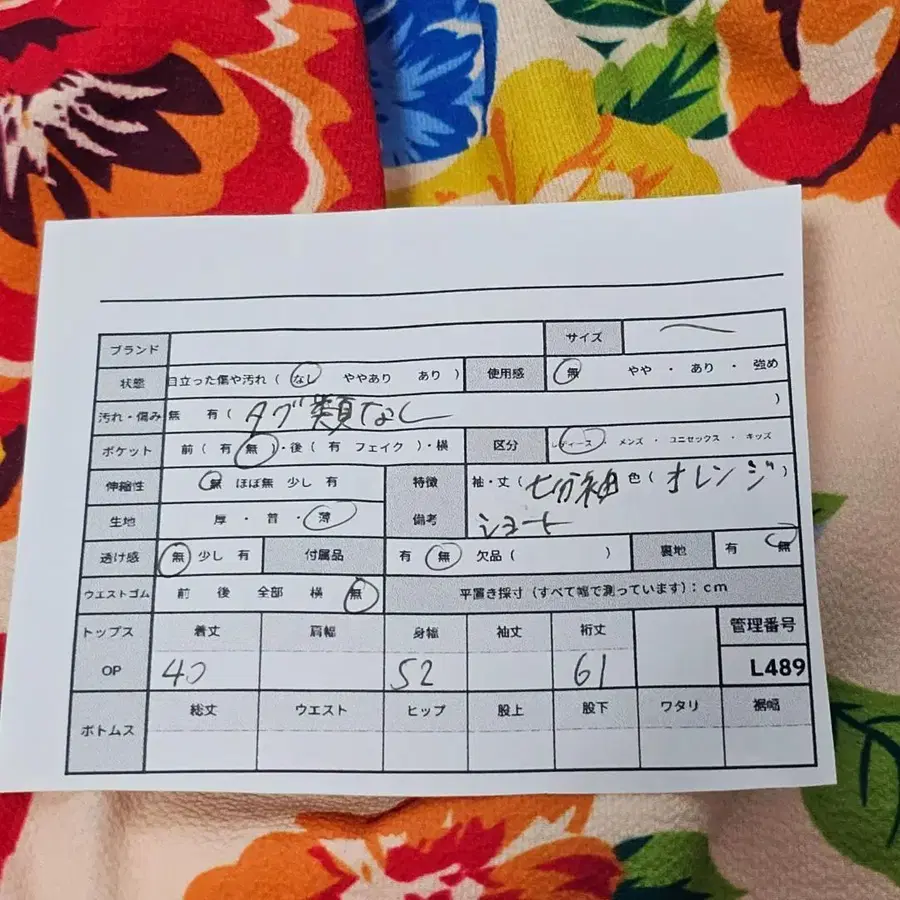 ブランド サイズ
状態 目立った傷や汚れ ( なし ややあり あり ) 使用感 無 やや ・ あり ・ 強め
汚れ・傷み 無 有 ( タグ類なし )
ポケット 前 ( 有 無 ) ・後 ( 有 フェイク ) ・横 区分 レディース ・ メンズ ・ ユニセックス ・ キッズ
伸縮性 無 ほぼ無 少し 有 特徴 袖・丈 ( 七分袖 色 ( オレンジ )
生地 厚 ・ 普 ・ 薄 備考 ショート
透け感 無 少し 有 付属品 有 無 欠品 ( ) 裏地 有 無
ウエストゴム 前 後 全部 横 無 平置き採寸 (すべて幅で測っています) : cm
トップス 着丈 肩幅 身幅 袖丈 裄丈 管理番号
OP 40 52 61 L489
ボトムス 総丈 ウエスト ヒップ 股上 股下 ワタリ 裾幅